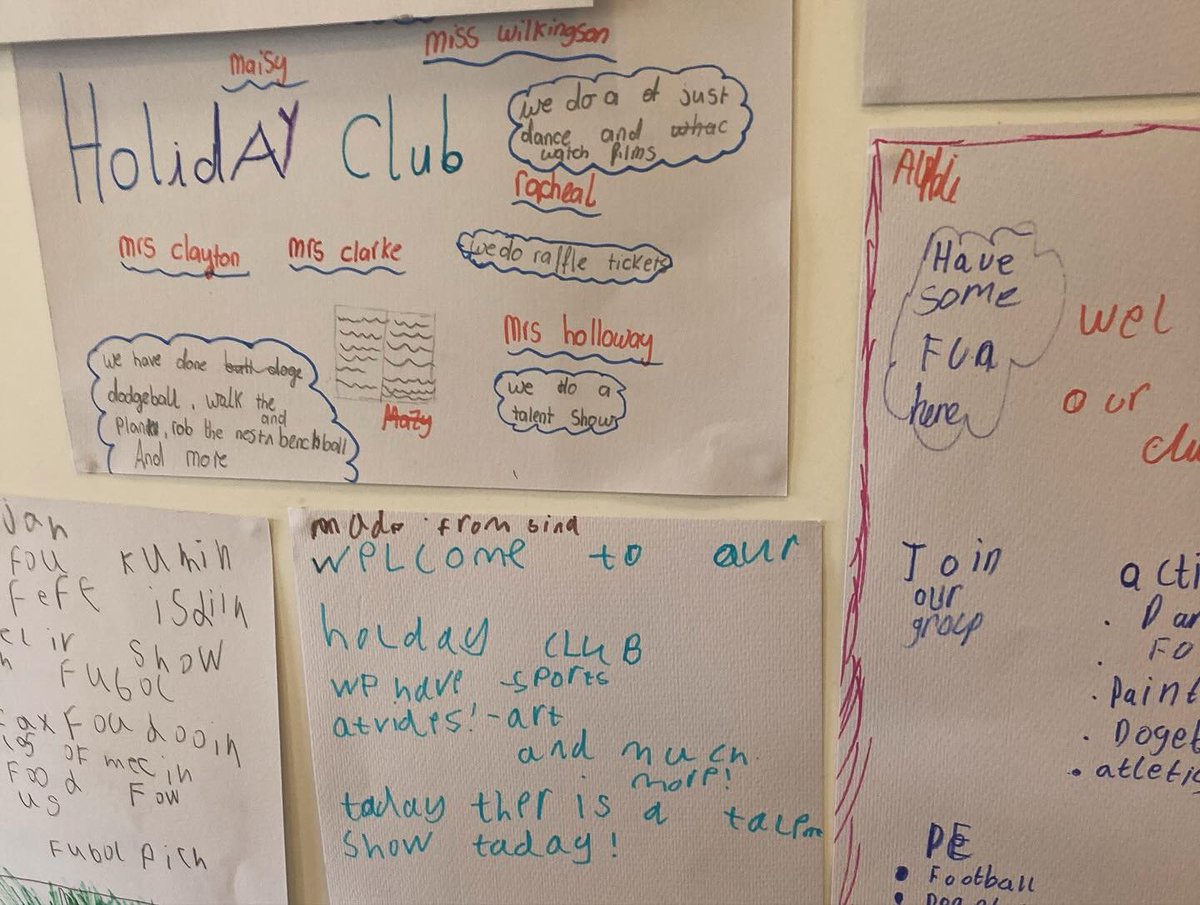 miss wilkingson
maisy
HolidAY Club
we do a of just
dance and whac
watch films
rapheal
mrs clayton
mrs clarke
we do raffle tickets
mrs holloway
we have done doge
dodgeball, walk the
and
plank, rob the nest benchball
And more
Mazy
we do a
talent show
jan
fou kumin
feft isdiin
show
Fubol
Fou dooin
OF mec in
Food Fow
us
Fubol pich
made from
WELCOME to aur
holday CLUB
we have - sports
atvides! - art
and much
more!
taday ther is a talen
show taday!
Have
some
Fun
here
wel
our
clu
Join
our
group
acti
Dan
FO
. Paint
. Doget
• atletic
PE
• Football